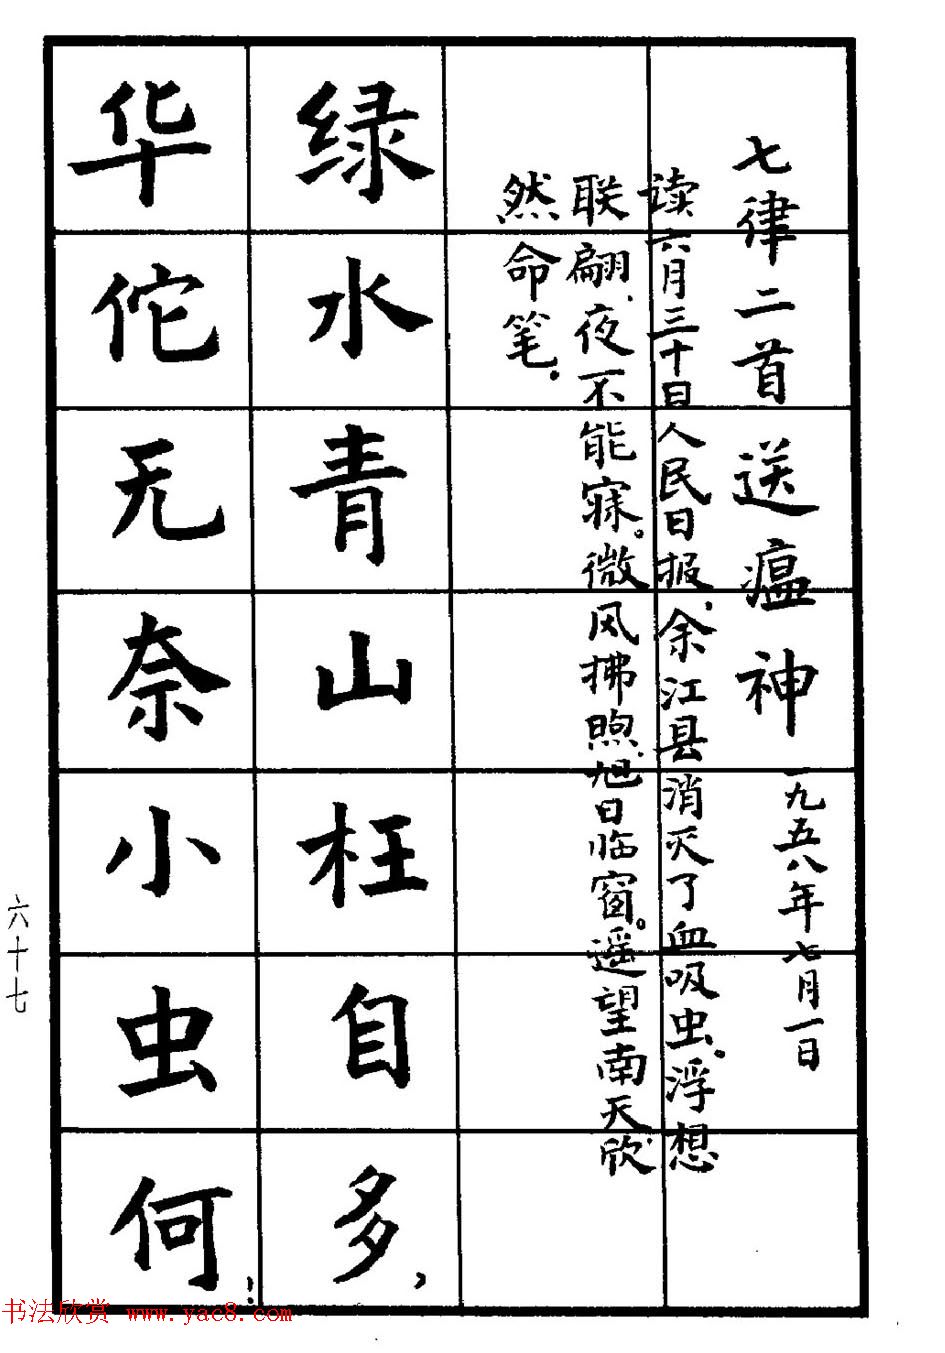 七律二首 送瘟神 一九五八年七月一日
读六月三十日人民日报，余江县消灭了血吸虫。浮想
联翩，夜不能寐。微风拂煦，旭日临窗。遥望南天，欣
然命笔。
绿水青山枉自多，
华佗无奈小虫何！
六十七
书法欣赏 www.yac8.com